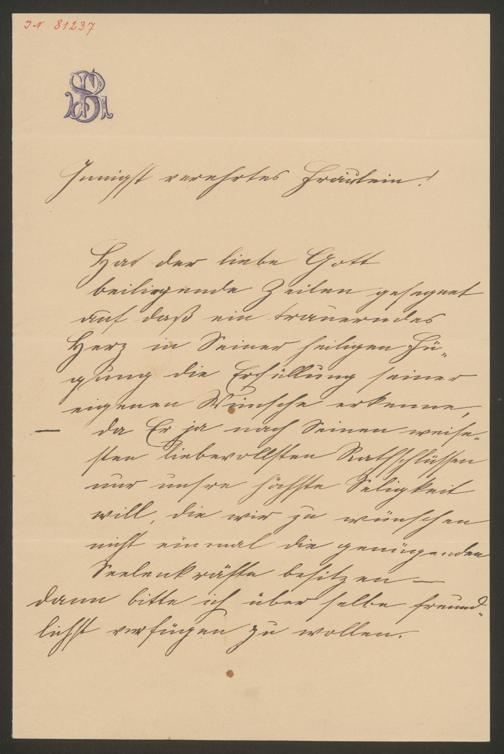 IN 81237
BS
Innigst verehrtes Fräulein!
Hat der liebe Gott
beiliegende Zeilen gesegnet
auf daß ein trauerndes
Herz in Seiner heiligen Fü-
gung die Erfüllung seiner
eigenen Wünsche erkenne,
– da Er ja nach Seinen weise-
sten liebevollsten Rathschlüssen
nur unsre höchste Seligkeit
will, die wir zu wünschen
nicht einmal die genügenden
Seelenkräfte besitzen –
dann bitte ich über selbe freund-
lichst verfügen zu wollen.